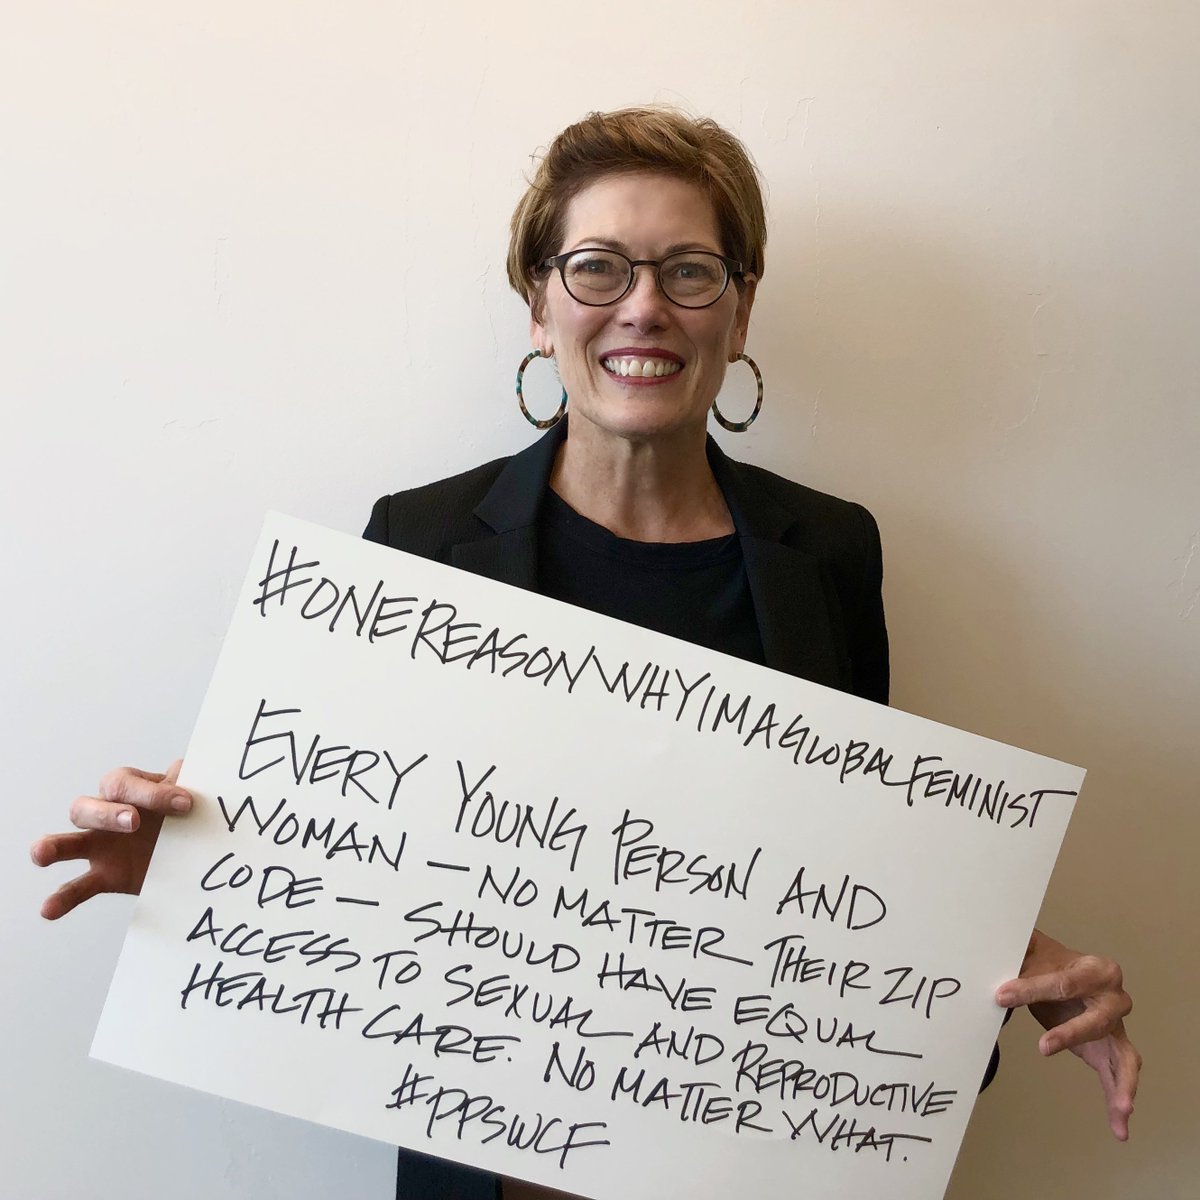 #ONEREASONWHYIMAGLOBALFEMINIST
EVERY YOUNG PERSON AND
WOMAN – NO MATTER THEIR ZIP
CODE – SHOULD HAVE EQUAL
ACCESS TO SEXUAL AND REPRODUCTIVE
HEALTH CARE. NO MATTER WHAT.
#PPSWCF